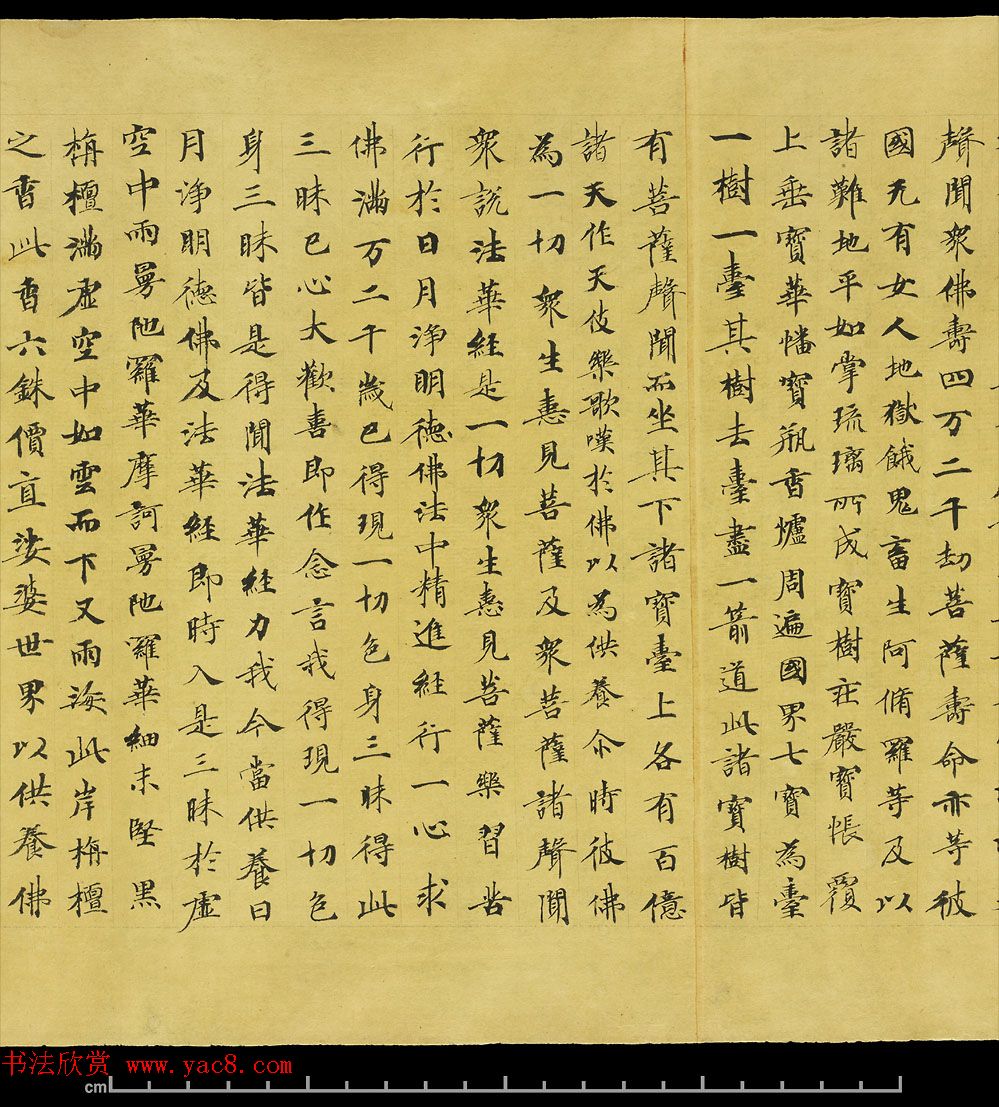 聲聞衆佛壽四万二千劫菩薩壽命亦等彼
國无有女人地獄餓鬼畜生阿脩羅等及以
諸難地平如掌琉璃所成寶樹莊嚴寶帳覆
上垂寶華幡寶瓶香爐周遍國界七寶為臺
一樹一臺其樹去臺盡一箭道此諸寶樹皆
有菩薩聲聞而坐其下諸寶臺上各有百億
諸天作天伎樂歌嘆於佛以為供養尒時彼佛
為一切衆生憙見菩薩及衆菩薩諸聲聞
衆說法華經是一切衆生憙見菩薩樂習苦
行於日月淨明德佛法中精進經行一心求
佛滿万二千歲已得現一切色身三昧得此
三昧已心大歡喜即作念言我得現一切色
身三昧皆是得聞法華經力我今當供養日
月淨明德佛及法華經即時入是三昧於虛
空中雨曼陁羅華摩訶曼陁羅華細末堅黑
栴檀滿虛空中如雲而下又雨海此岸栴檀
之香此香六銖價直娑婆世界以供養佛
书法欣赏 www.yac8.com
cm